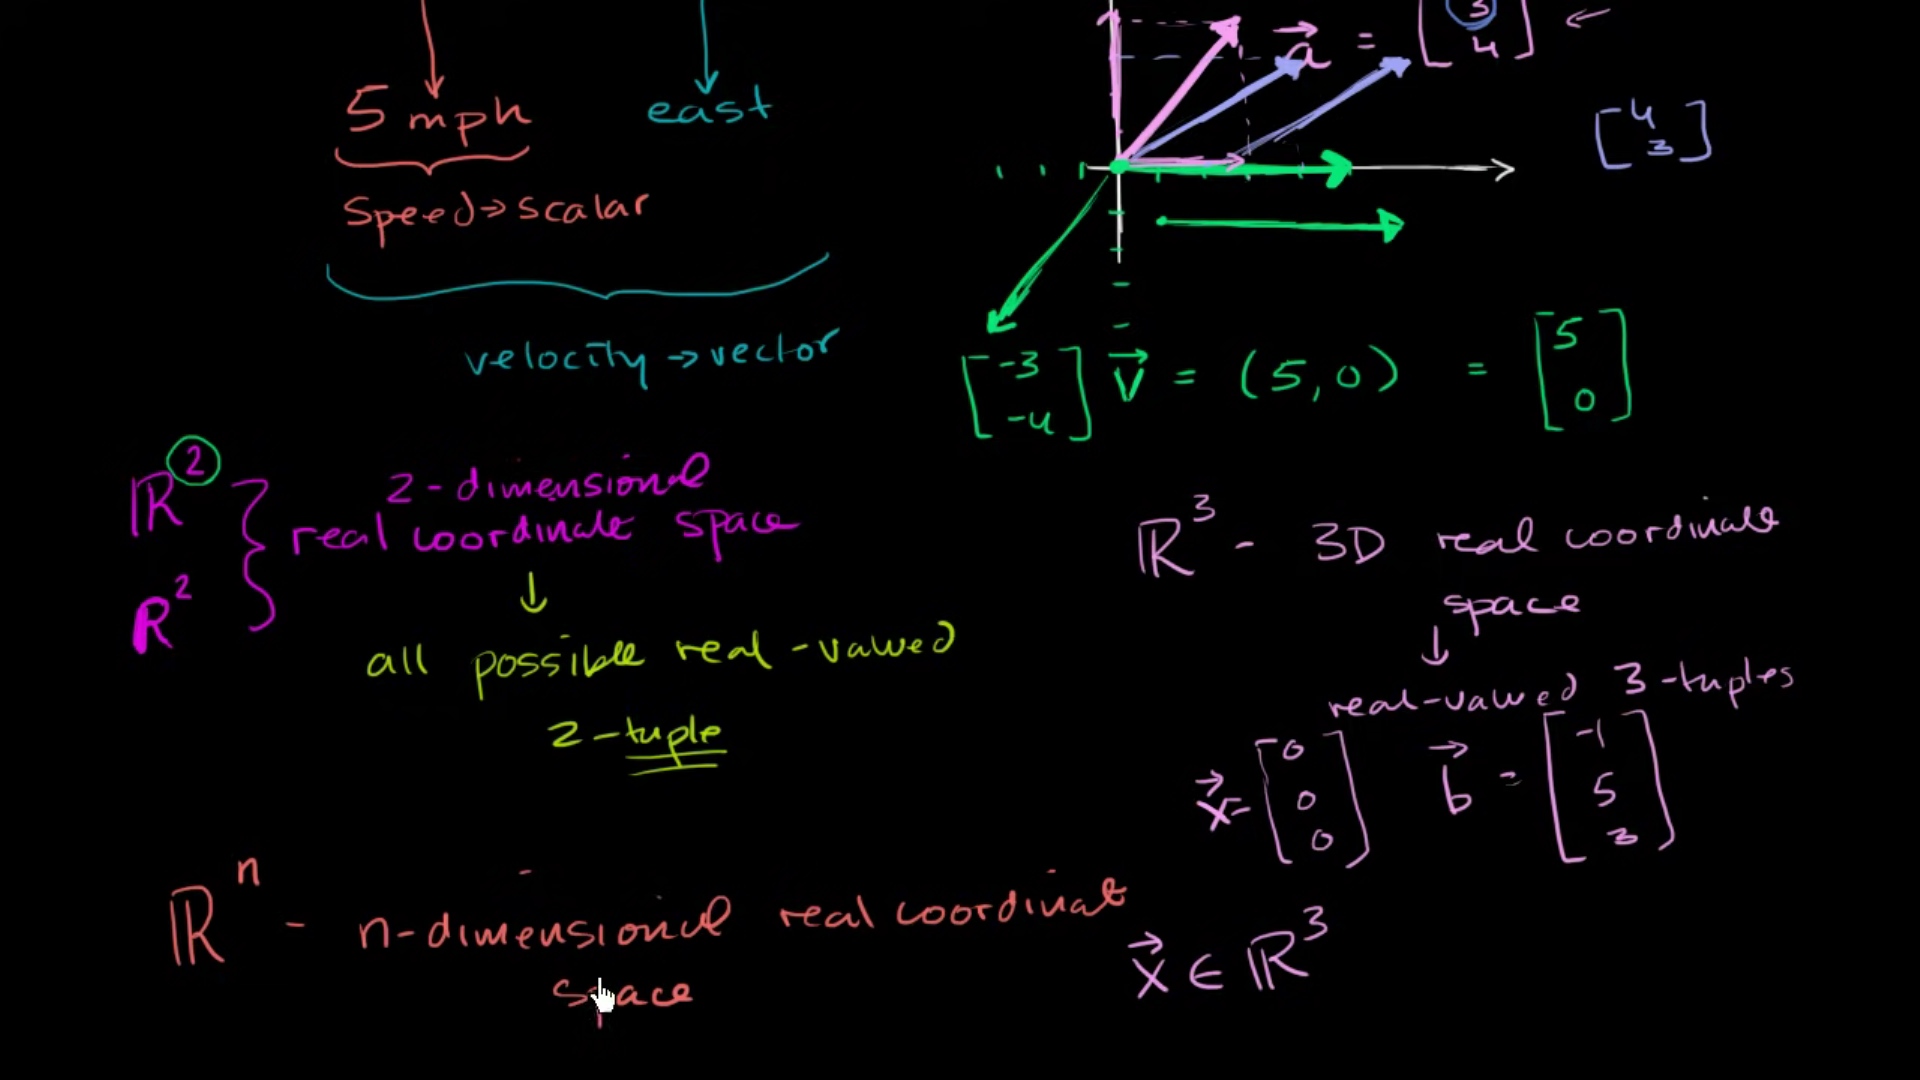 5 mph
east
speed → scalar
velocity → vector
a⃗ = [3
4] ←
[4
3]
[-3
-4]
v⃗ = (5,0) = [5
0]
ℝ² } 2-dimensional
R² real coordinate space
↓
all possible real-valued
2-tuple
ℝ³ - 3D real coordinate
space
↓
real-valued 3-tuples
x⃗ = [0
0
0]
b⃗ = [-1
5
3]
ℝⁿ - n-dimensional real coordinate
space
x⃗ ∈ ℝ³